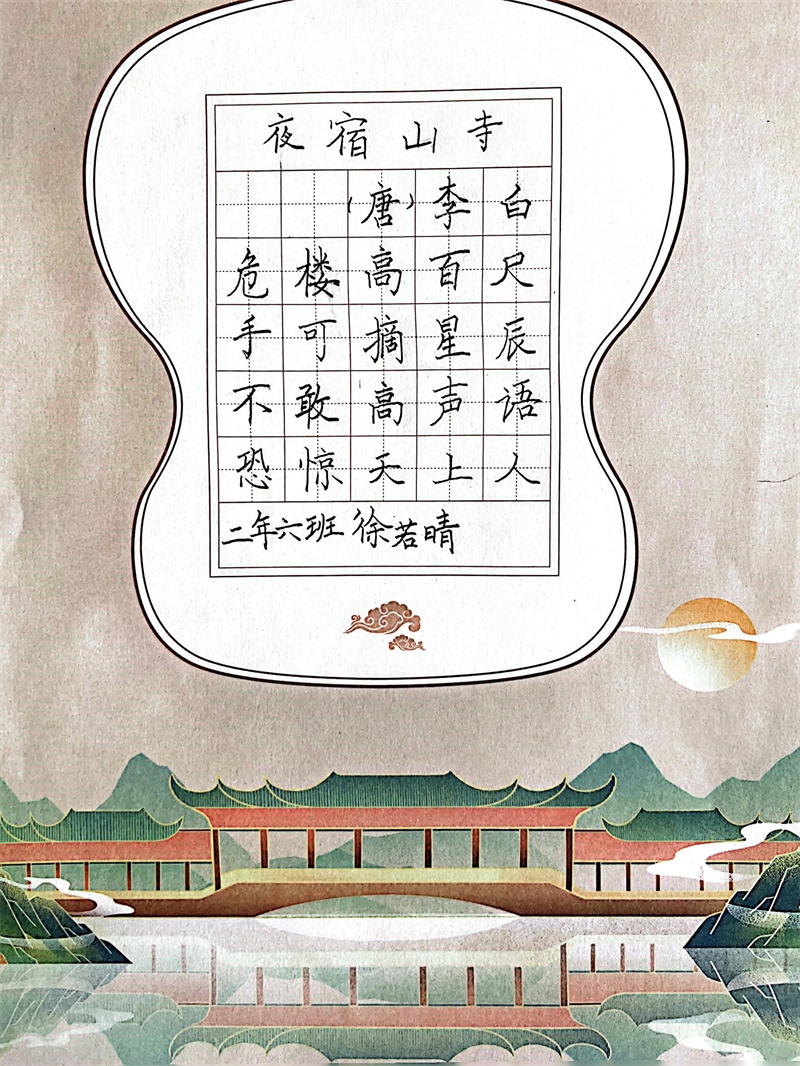 夜宿山寺
（唐）李白
危楼高百尺
手可摘星辰
不敢高声语
恐惊天上人
二年六班 徐若晴